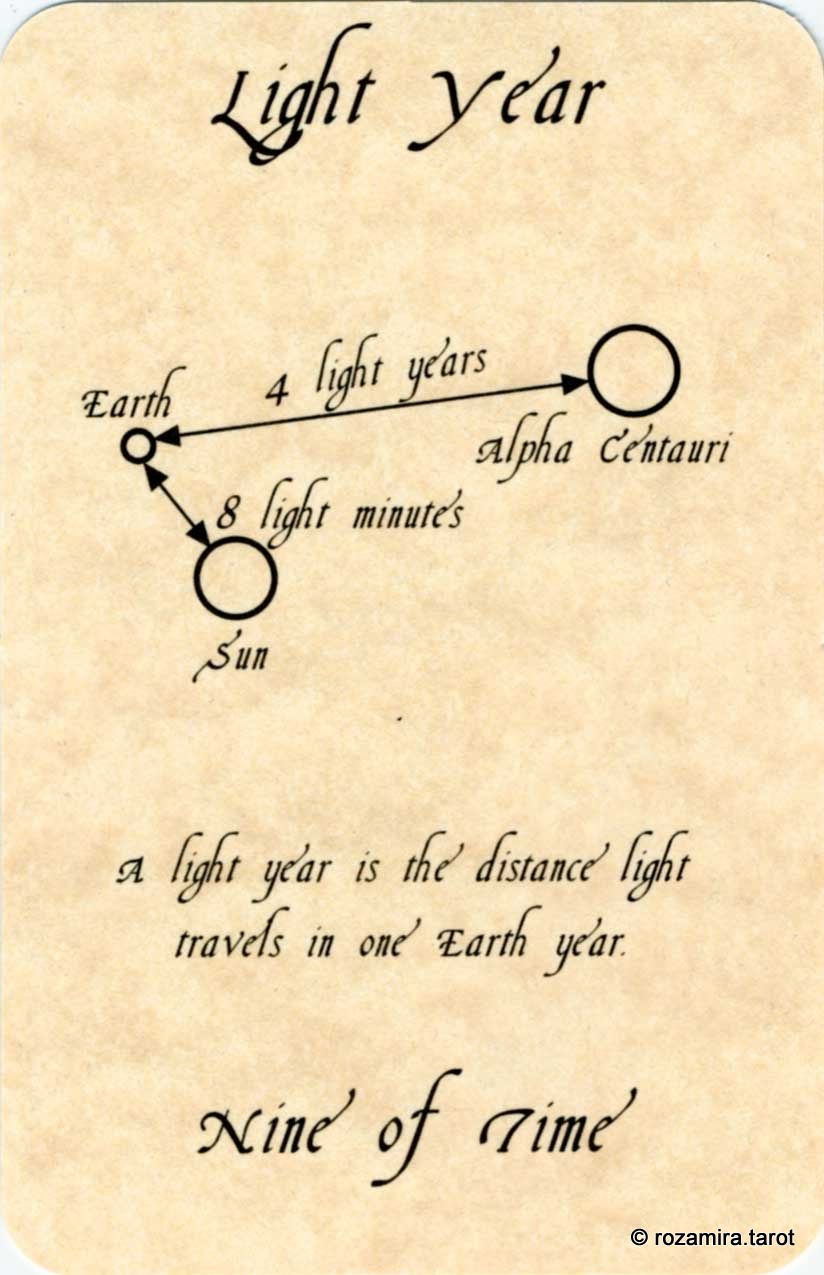 Light Year
4 light years
Earth
Alpha Centauri
8 light minutes
Sun
A light year is the distance light
travels in one Earth year.
Nine of Time
© rozamira.tarot